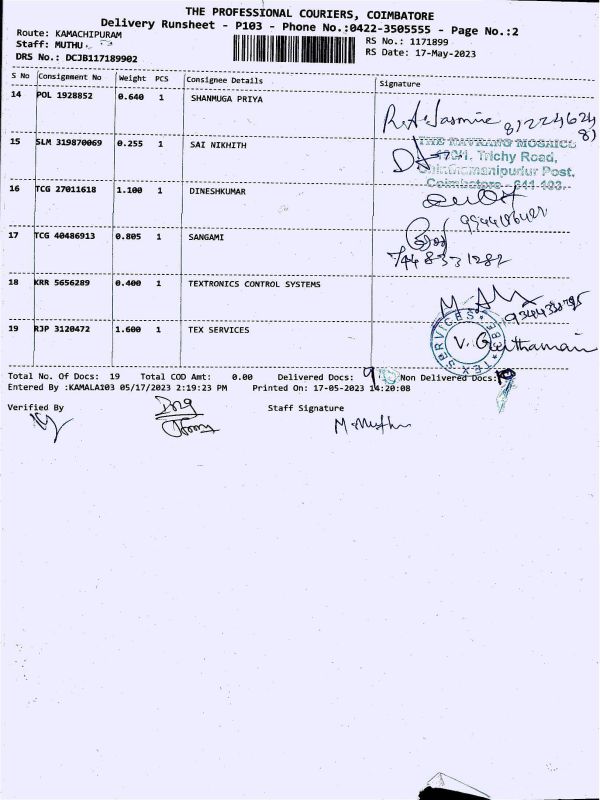 THE PROFESSIONAL COURIERS, COIMBATORE
Delivery Runsheet - P103 - Phone No.:0422-3505555 - Page No.:2
Route: KAMACHIPURAM
RS No.: 1171899
Staff: MUTHU .
RS Date: 17-May-2023
DRS No.: DCJB117189902
S No Consignment No Weight PCS Consignee Details Signature
14 POL 1928852 0.640 1 SHANMUGA PRIYA
15 SLM 319870069 0.255 1 SAI NIKHITH
Trichy Road,
16 TCG 27011618 1.100 1 DINESHKUMAR
17 TCG 40486913 0.805 1 SANGAMI
18 KRR 5656289 0.400 1 TEXTRONICS CONTROL SYSTEMS
19 RJP 3120472 1.600 1 TEX SERVICES
TEX SERVICES
Total No. Of Docs: 19 Total COD Amt: 0.00 Delivered Docs: 9 Non Delivered Docs:
Entered By :KAMALA103 05/17/2023 2:19:23 PM Printed On: 17-05-2023 14:20:08
Verified By Staff Signature
M Muthu